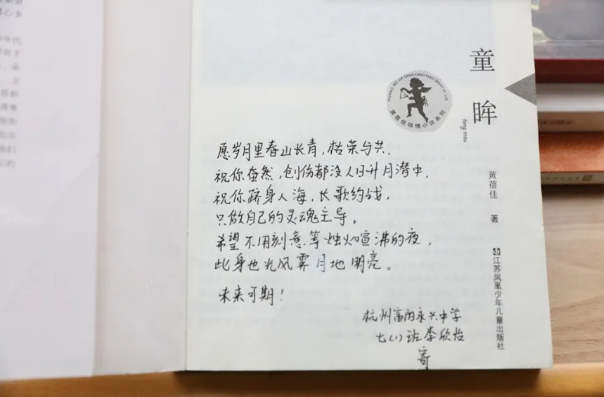 童眸
tong mou
黄蓓佳 著
江苏凤凰少年儿童出版社
愿岁月里春山长青,枯荣与共,
祝你盎然,创伤都没入日升月潜中,
祝你跻身人海,长歌约战,
只做自己的灵魂主导。
希望不用刻意等烛火喧沸的夜,
此身也光风霁月地明亮。
未来可期!
杭州富阳永兴中学
七(1)班 李欣怡
寄